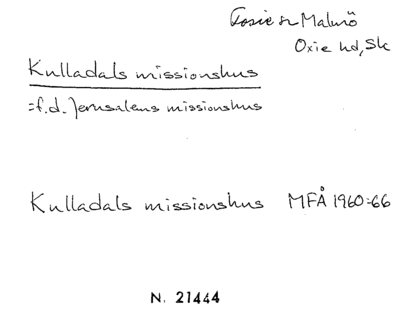 Fosie sn Malmö
Oxie hd, Sk
Kulladals missionshus
=f.d. Jerusalems missionshus
Kulladals missionshus MFÅ 1960:66
N. 21444